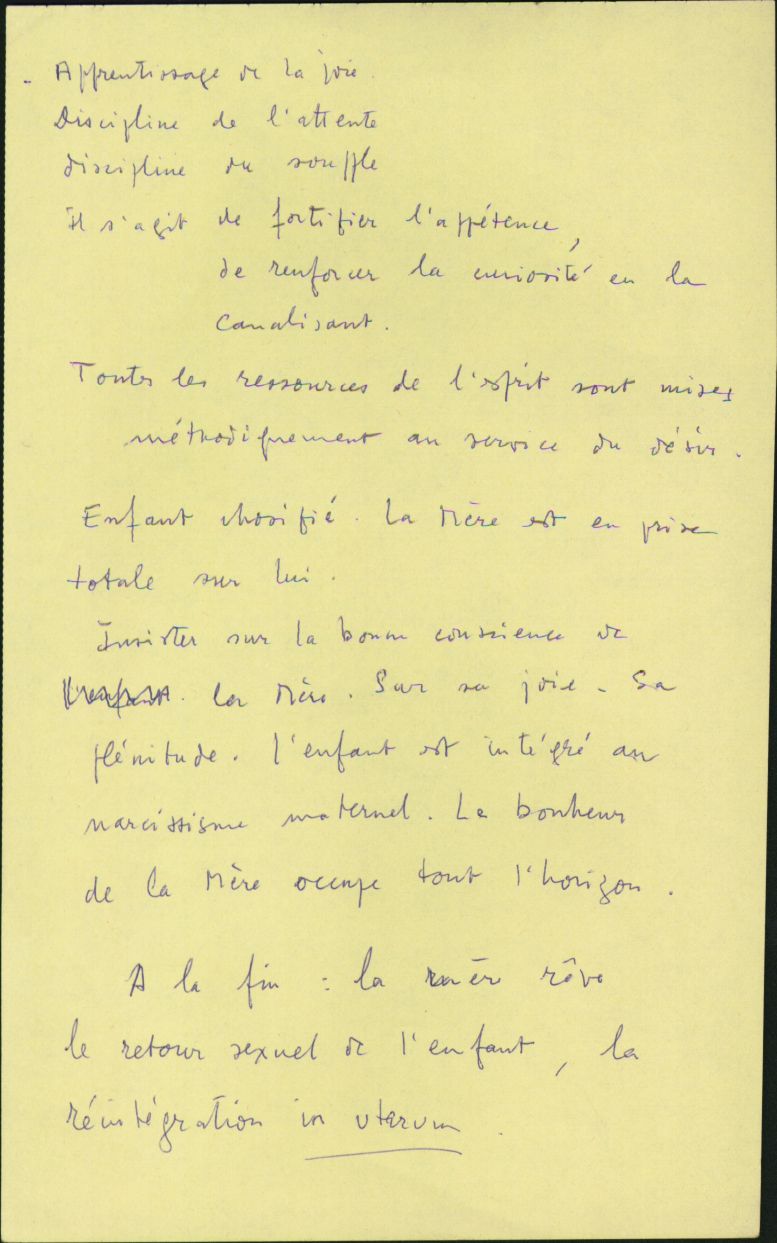 - Apprentissage de la joie.
Discipline de l'attente
discipline du souffle
Il s'agit de fortifier l'appétence,
de renforcer la curiosité en la
canalisant.
Toutes les ressources de l'esprit sont mises
méthodiquement au service du désir.
Enfant chosifié. La Mère est en prise
totale sur lui.
Insister sur la bonne conscience de
l'enfant. la Mère. Sur sa joie - Sa
plénitude. l'enfant est intégré au
narcissisme maternel. Le bonheur
de la Mère occupe tout l'horizon.
A la fin : la mère rêve
le retour sexuel de l'enfant, la
réintégration in uterum.